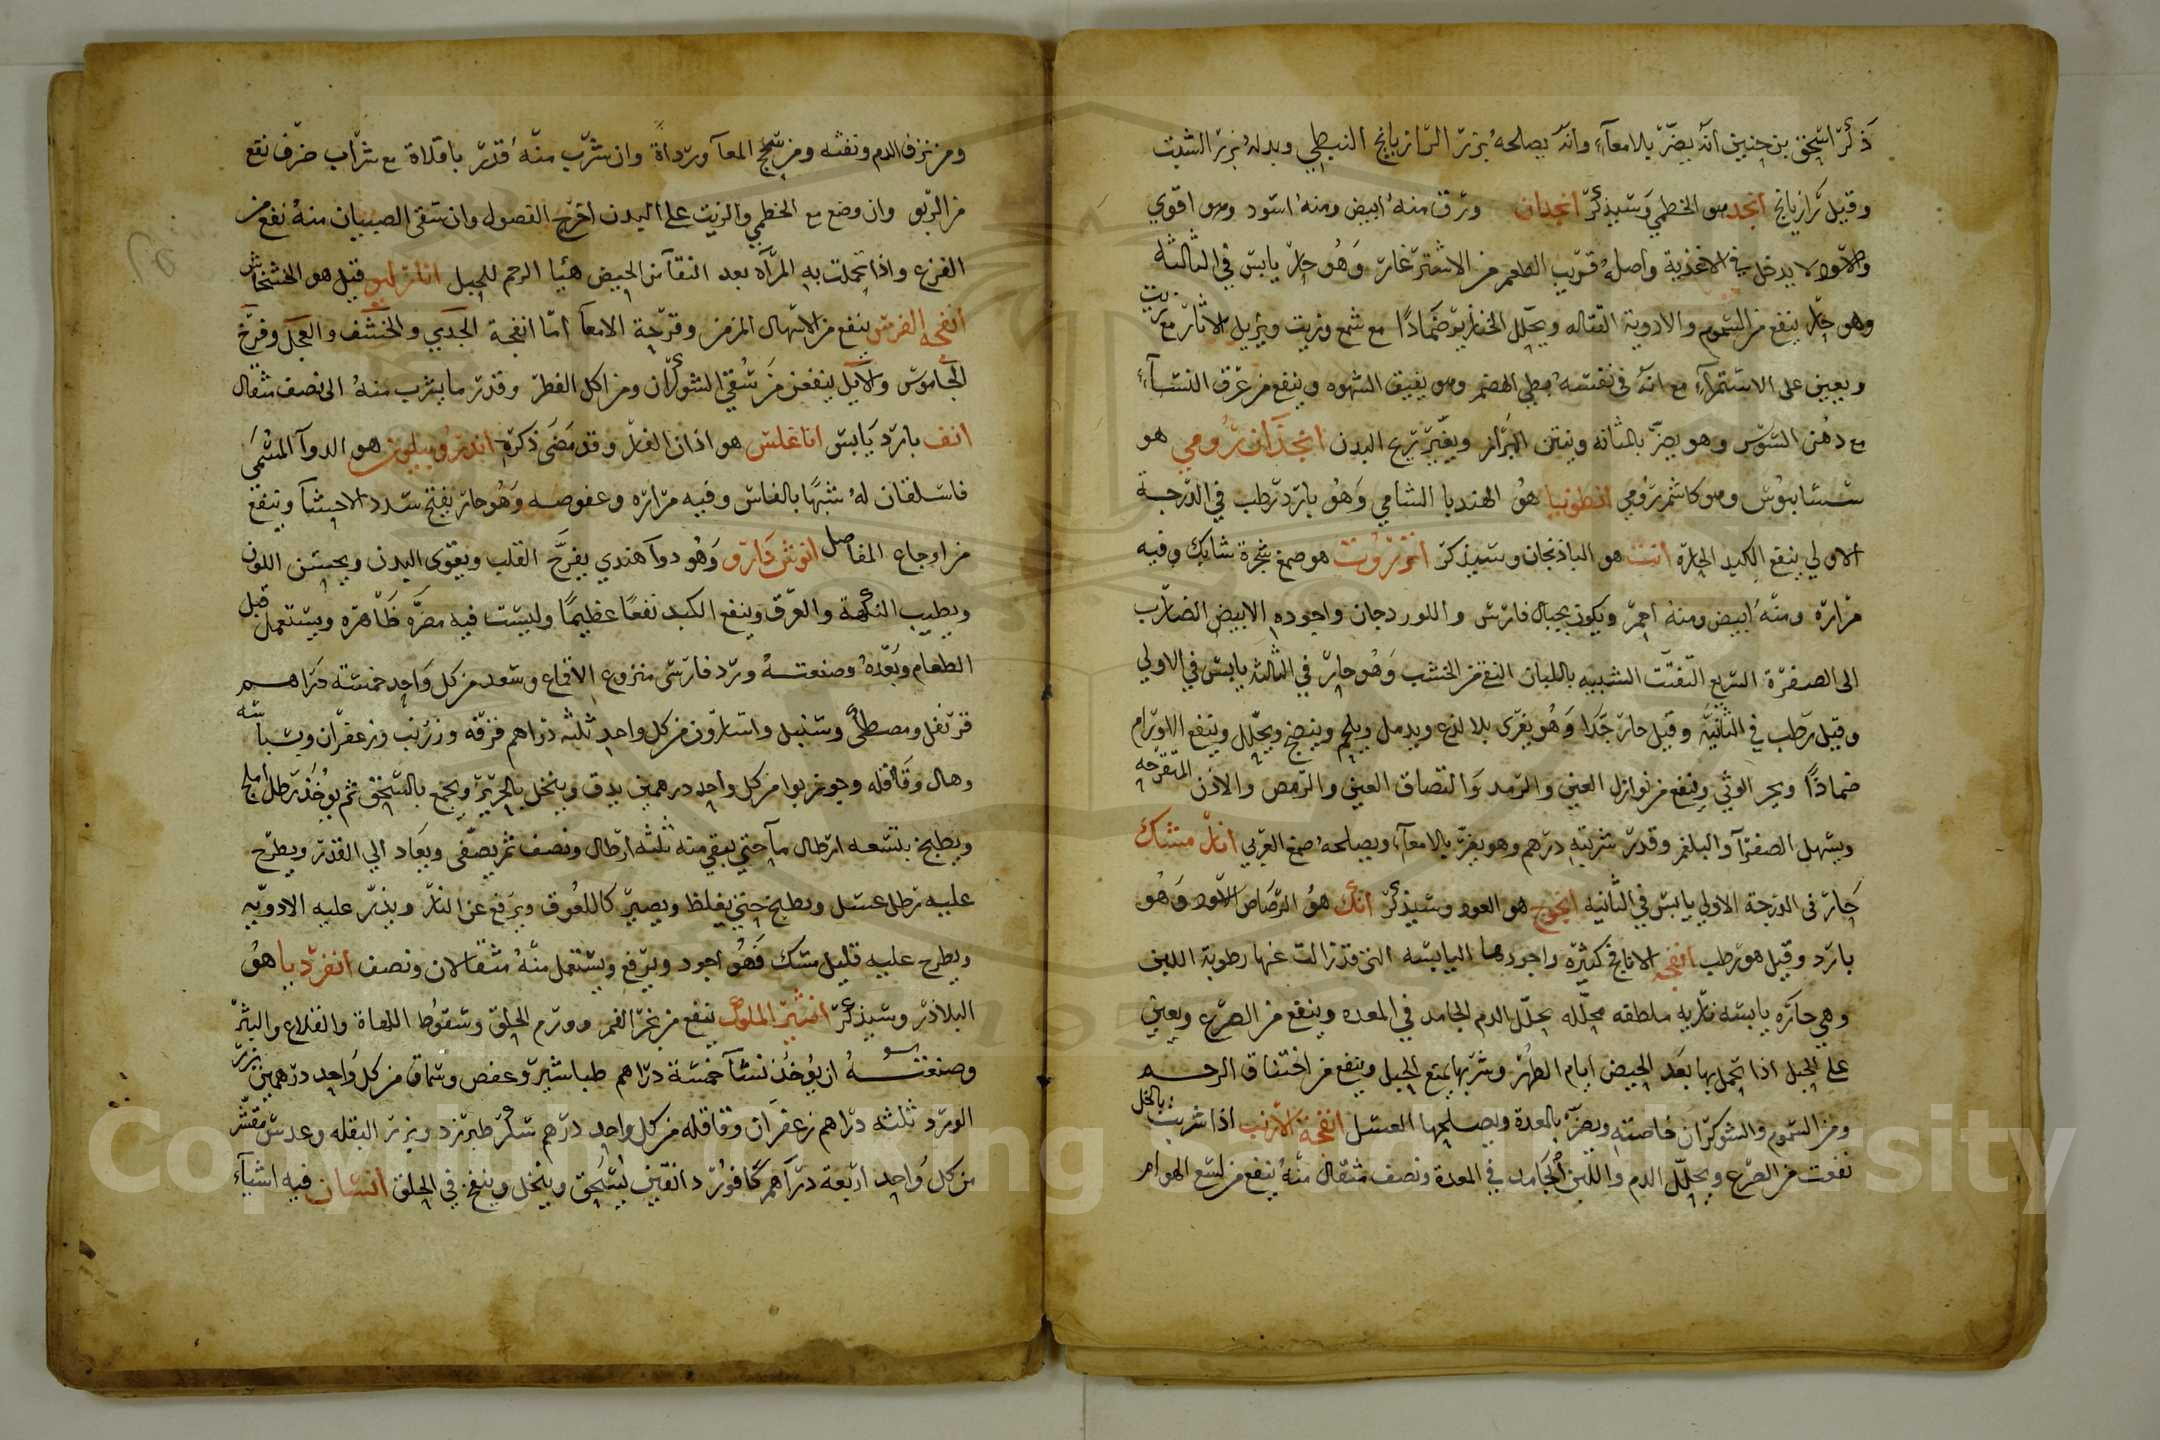 ذكر اسحق بن حنين انه يضر بالامعآء وانه يصلحه بزر الرازيانج النبطي وبدله بزر الشبت
وقيل رازيانج انجد هو الخطمي وسيذكر انجدان ورق منه ابيض ومنه اسود وهو اقوي
والاسود لا يدخل في الاغذية واصله قريب الطعم من الاشترغار وهو حار يابس في الثالثه
وهو حار ينفع من السموم والادوية القتاله ويحلل الخنازير ضمادًا مع شمع وزيت ويزيل الاثار مع زيت
ويعين على الاستمرآء مع انه في نفسه بطي الهضم وهو يفيق الشهوه وينفع من عرق النسآء
مع دهن السوسن وهو يضر بالمثانه وينتن البراز ويغير ريح البدن انجدان رومي هو
سساليوس وهو كاشم رومي انطونيا هو الهندبا الشامي وهو بارد رطب في الدرجة
الاولي ينفع الكبد الحاره انب هو الباذنجان وسيذكر انزروت هو صمغ شجرة شايك وفيه
مرارة ومنه ابيض ومنه احمر ويكون بجبال فارس واللوردجان واجوده الابيض الضارب
الى الصفرة السريع التفتت الشبيه باللبان النقي من الخشب وهو حار في الثالثة يابس في الاولي
وقيل رطب في الثانية وقيل حار جدا وهو يغرى بلا لذع ويدمل ويلحم وينضج ويحلل وينفع الاورام
ضمادًا ويجبر الوثي وينفع من نوازل العين والرمد والتصاق العين والرمص والاذن المتقرحه
ويسهل الصفرآ والبلغم وقدر شربته درهم وهو يضر بالامعآء ويصلحه صمغ العربي انار مشك
حار في الدرجة الاولي يابس في الثانيه انجوج هو العود وسيذكر انك هو الرصاص الاسود وهو
بارد وقيل هو رطب انفحه الانافح كثيرة واجودها اليابسه التي قد زالت عنها رطوبة اللبن
وهي حاره يابسه نارية ملطفه محلله يحلل الدم الجامد في المعده وينفع من الصرع ويعين
على الحبل اذا تحمل بها بعد الحيض ايام الطهر وشربها يمنع الحبل وينفع من اختناق الرحم
ومن السموم والشوكران خاصته ويضر بالمعدة ويصلحها العسل انفحة الارنب اذا شربت بالخل
نفعت من الصرع ويحلل الدم واللبن الجامد في المعدة ونصف مثقال منه ينفع من لسع الهوام
ومن نزف الدم ونفثه ومن سحج المعآ ورداة وان شرب منه قدر باقلاة مع شراب صرف نفع
من الربو وان وضع مع الخطمي والزيت على البدن اخرج الفصول وان سقى الصبيان منه نفع من
الفزع واذا تحملت به المرآه بعد النقآ من الحيض هيا الرحم للحبل قيل هو الخشخاش
انفحه الفرس ينفع من الاسهال المزمن وقرحة الامعآ امّا انفحة الجدي والخشف والعجل وفرخ
الجاموس والايل ينفعن من سقي الشوكران ومن اكل الفطر وقدر ما يشرب منه الى نصف مثقال
انف بارد يابس اناغلس هو اذان الفار وقد مضى ذكره هو الدوآ المسمى
فاسلقان له شبهًا بالفاس وفيه مراره وعفوصه وهو حار يفتح سدد الاحشآ وينفع
من اوجاع المفاصل انوش دارو وهو دوآ هندي يفرح القلب ويقوى البدن ويحسن اللون
ويطيب النكهة والعرق وينفع الكبد نفعًا عظيمًا وليست فيه مضره ظاهره ويستعمل قبل
الطعام وبعده وصنعته ورد فارسى منزوع الاقماع وسعد من كل واحد خمسة دراهم
قرنفل ومصطكى وسنبل واسارون من كل واحد ثلثه دراهم قرفه وزرنب وزعفران وبسباسه
وهال وقاقله وجوزبوا من كل واحد درهمين يدق وينخل بالحرير ويجمع بالسحق ثم يوخذ رطل املج
ويطبخ بتسعه ارطال مآ حتي يبقي منه ثلثه ارطال ونصف ثم يصفى ويعاد الي القدر ويطرح
عليه رطل عسل ويطبخ حتي يغلظ ويصير كاللعوق ويرفع عن النار ويذر عليه الادويه
ويطرح عليه قليل مسك فهو اجود ويرفع ويستعمل منه مثقالان ونصف انفرديا هو
البلاذر وسيذكر ينفع من بخر الفم وورم الحلق وسقوط اللهاة والقلاع والبثر
وصنعته ان يوخذ نشآ خمسة دراهم طباشير وعفص وسماق من كل واحد درهمين بزر
الورد ثلثه دراهم زعفران وقاقله من كل واحد درهم سكر طبرزد وبزر البقله وعدس مقشر
من كل واحد اربعة دراهم كافور دانقين يسحق وينخل وينفخ في الحلق انسان فيه اشيآء
Copyright © King Saud University